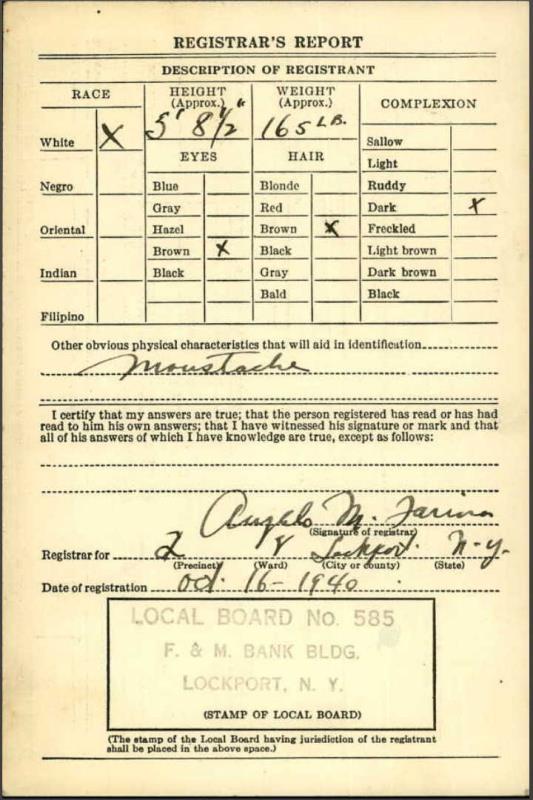 REGISTRAR'S REPORT
DESCRIPTION OF REGISTRANT
RACE
HEIGHT (Approx.)
WEIGHT (Approx.)
COMPLEXION
White X
5' 8 1/2"
165 LB.
EYES
HAIR
Sallow
Light
Negro
Blue
Blonde
Ruddy
Gray
Red
Dark X
Oriental
Hazel
Brown X
Freckled
Brown X
Black
Light brown
Indian
Black
Gray
Dark brown
Bald
Black
Filipino
Other obvious physical characteristics that will aid in identification
Moustache
I certify that my answers are true; that the person registered has read or has had
read to him his own answers; that I have witnessed his signature or mark and that
all of his answers of which I have knowledge are true, except as follows:
Angelo M. Farina
(Signature of registrar)
Registrar for 2 8 Lockport. N.Y.
(Precinct) (Ward) (City or county) (State)
Date of registration Oct. 16 - 1940
LOCAL BOARD No. 585
F. & M. BANK BLDG.
LOCKPORT, N. Y.
(STAMP OF LOCAL BOARD)
(The stamp of the Local Board having jurisdiction of the registrant
shall be placed in the above space.)